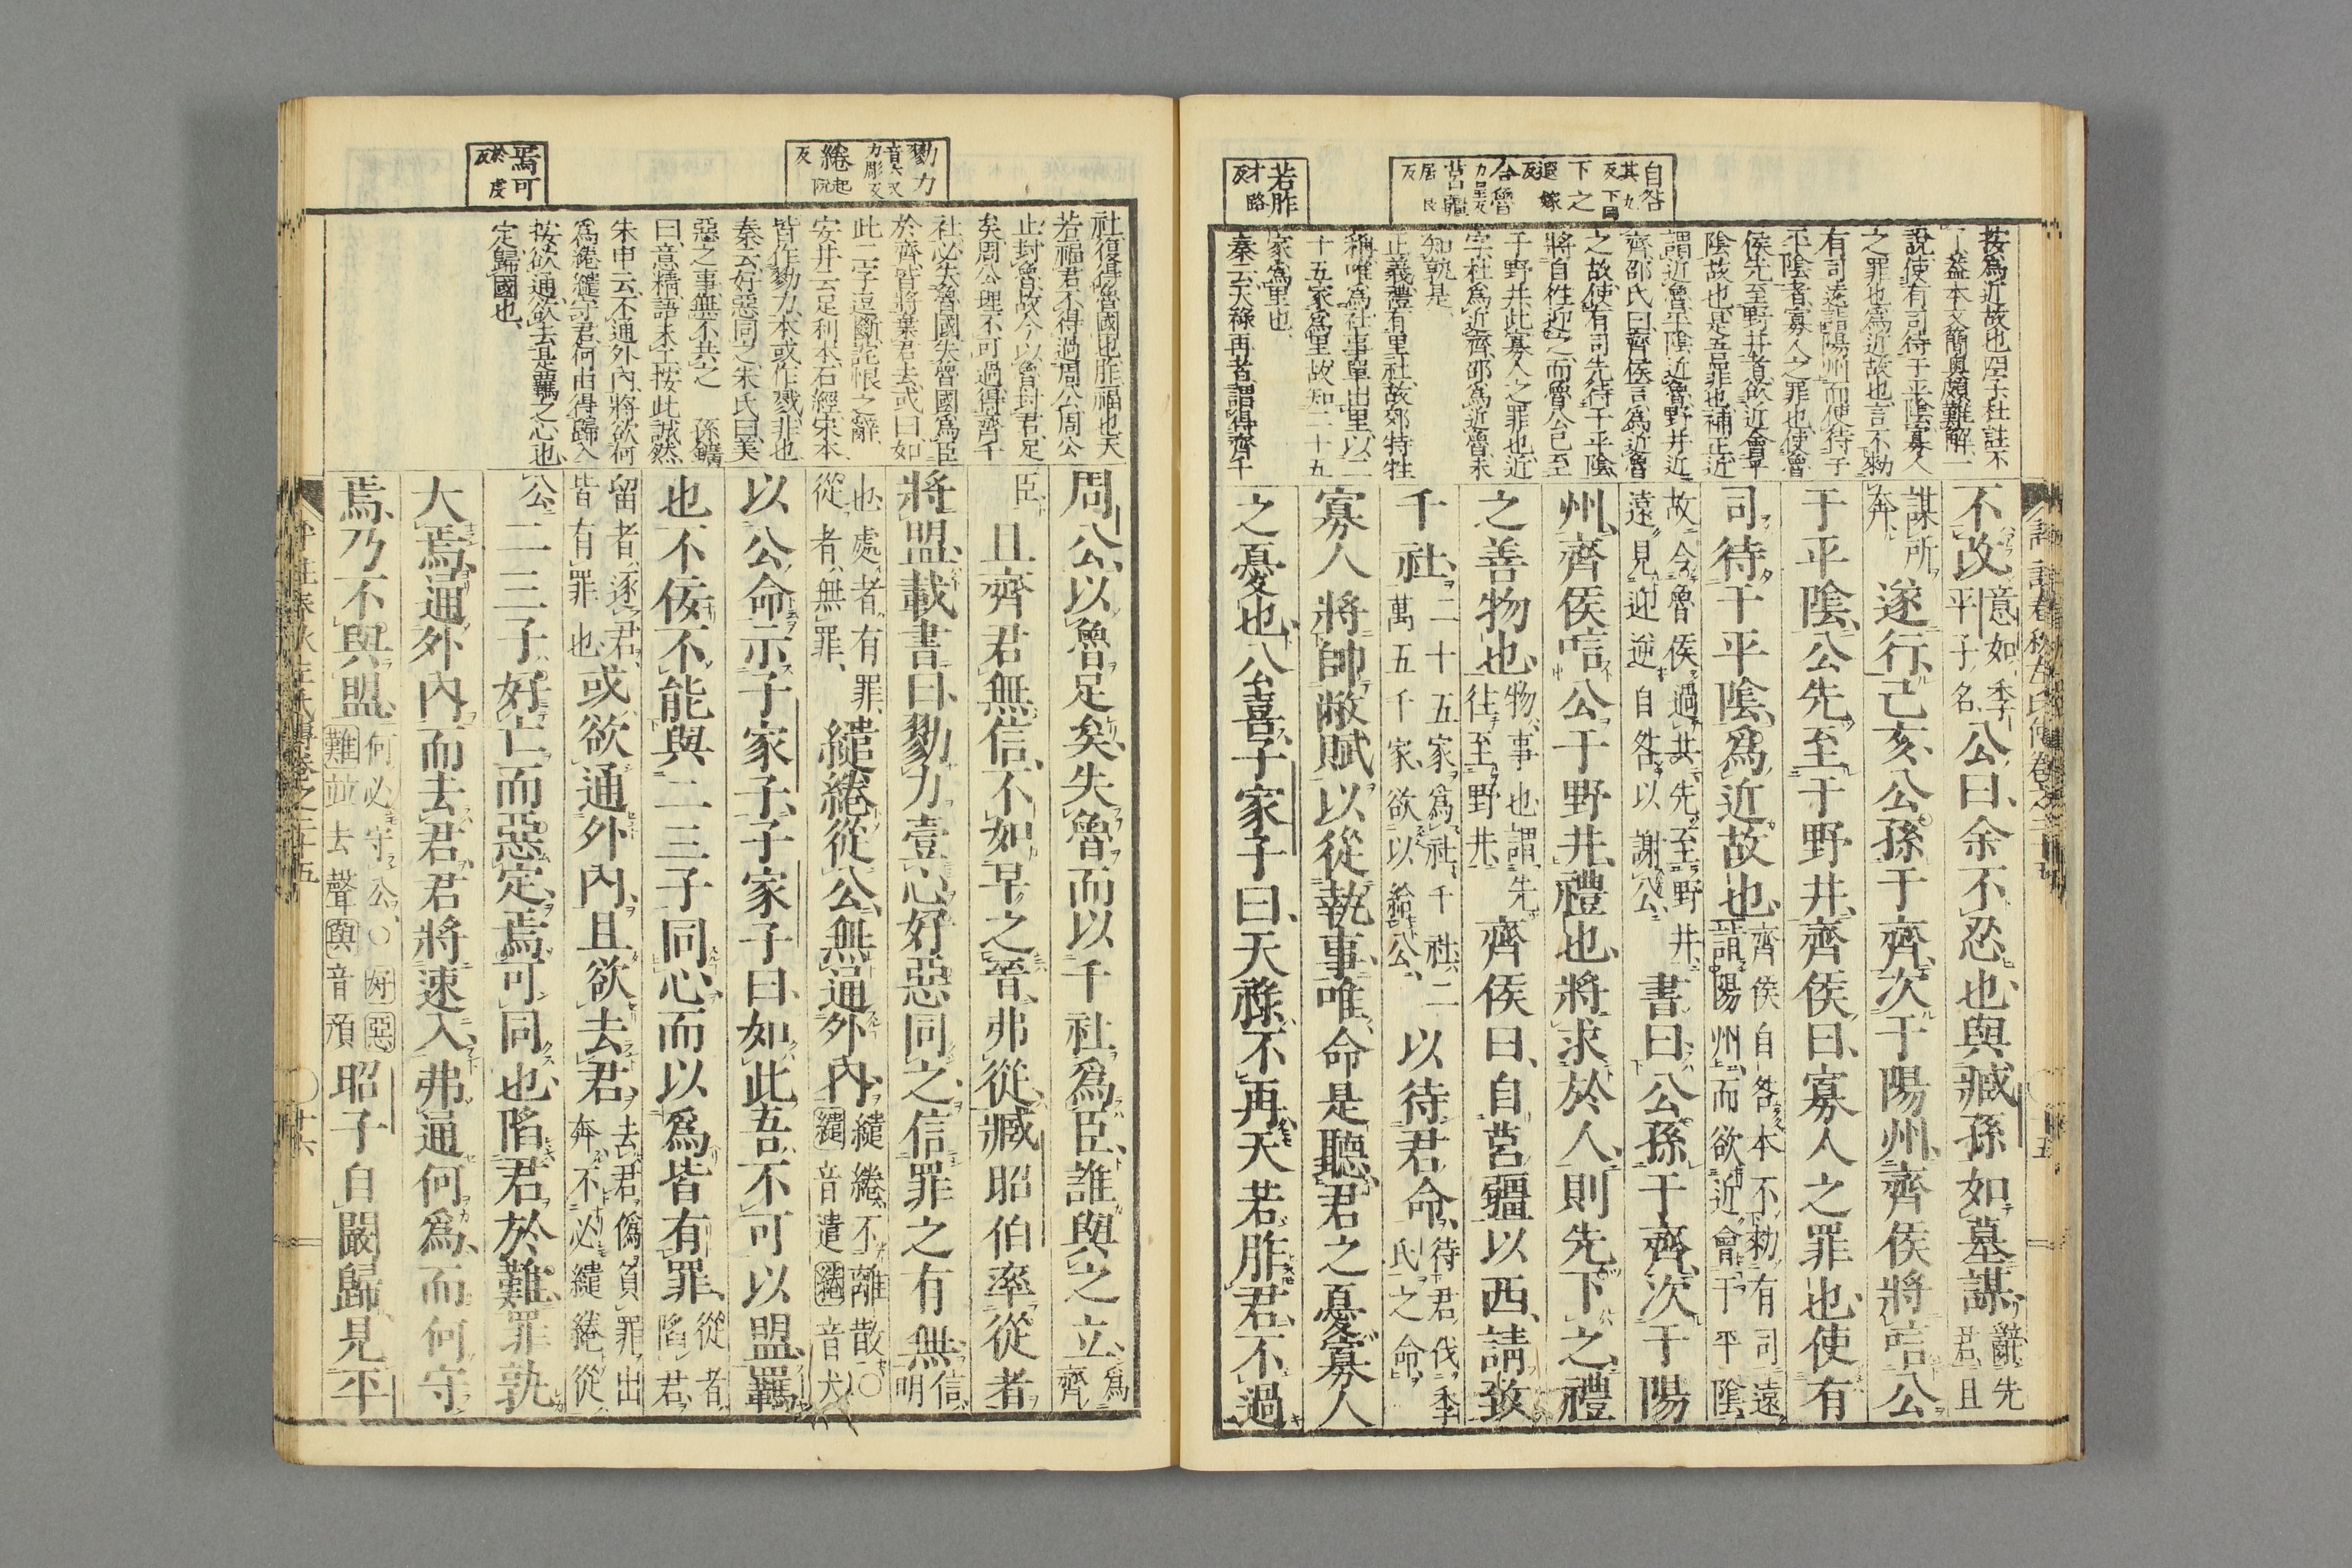 自咎
其九反
下同
下之
遐嫁反
莒疆
居良反
若胙
才路反
按爲近故也四字杜註不
說使有司待于平陰寡人
之罪也爲近故也言不勑
有司遠詣陽州而使待于
平陰者寡人之罪也使魯
侯先至野井者欲近會平
陰故也是吾罪也補正近
謂近魯平陰近魯野井近
齊邵氏曰齊侯言爲近魯
之故使有司先待于平陰
將自往迎之而魯公已至
于野井此寡人之罪也近
字杜爲近齊邵爲近魯未
知孰是
正義禮有里社故郊特牲
稱唯爲社事單出里以二
十五家爲里故知二十五
家爲里也
秦云天祿再者謂得齊千
不改意如季
平子名公曰余不忍也與臧孫如墓謀辭先
君且
謀所
奔遂行己亥公孫于齊次于陽州齊侯將唁公
于平陰公先至于野井齊侯曰寡人之罪也使有
司待于平陰爲近故也齊侯自咎本不勑有司遠
詣陽州而欲近會于平陰
故令魯侯過共先至野井
遠見迎逆自咎以謝公書曰公孫于齊次于陽
州齊侯唁公于野井禮也將求於人則先下之禮
之善物也物事也謂先
往至野井齊侯曰自莒疆以西請致
千社二十五家爲社千社二
萬五千家欲以給公以待君命待君伐季
氏之命
寡人將帥敝賦以從執事唯命是聽君之憂寡人
之憂也公喜子家子曰天祿不再天若胙君不過
勠力
音六又
力彫反
繾綣
起阮反
焉可
於虔反
社復得魯國也胙福也天
若福君不得過周公周公
止封魯故今以魯封君足
矣周公理不可過得齊千
社必失魯國失魯國爲臣
於齊皆將棄君去或曰如
此二字逗斷詫恨之辭
安井云足利本石經宋本
皆作勠力本或作戮非也
秦云好惡同之朱氏曰美
惡之事無不共之 孫鑛
曰意精語未工按此誠然
朱申云不通外內將欲何
爲繾綣守君何由得歸入
按欲通欲去是羈之心也
定歸國也
周公以魯足矣失魯而以千社爲臣誰與之立爲齊
臣且齊君無信不如早之晉弗從臧昭伯率從者
將盟載書曰勠力壹心好惡同之信罪之有無信明
也處者有罪
從者無罪繾綣從公無通外內繾綣不離散○
繾音遣綣音犬
以公命示子家子子家子曰如此吾不可以盟羈
也不佞不能與二三子同心而以爲皆有罪從者
陷君
留者逐君
皆有罪也或欲通外內且欲去君去君僞負罪出
奔不必繾綣從
公二三子好亡而惡定焉可同也陷君於難罪孰
大焉通外內而去君君將速入弗通何爲而何守
焉乃不與盟何必守公○好惡
難竝去聲與音預昭子自闞歸見平